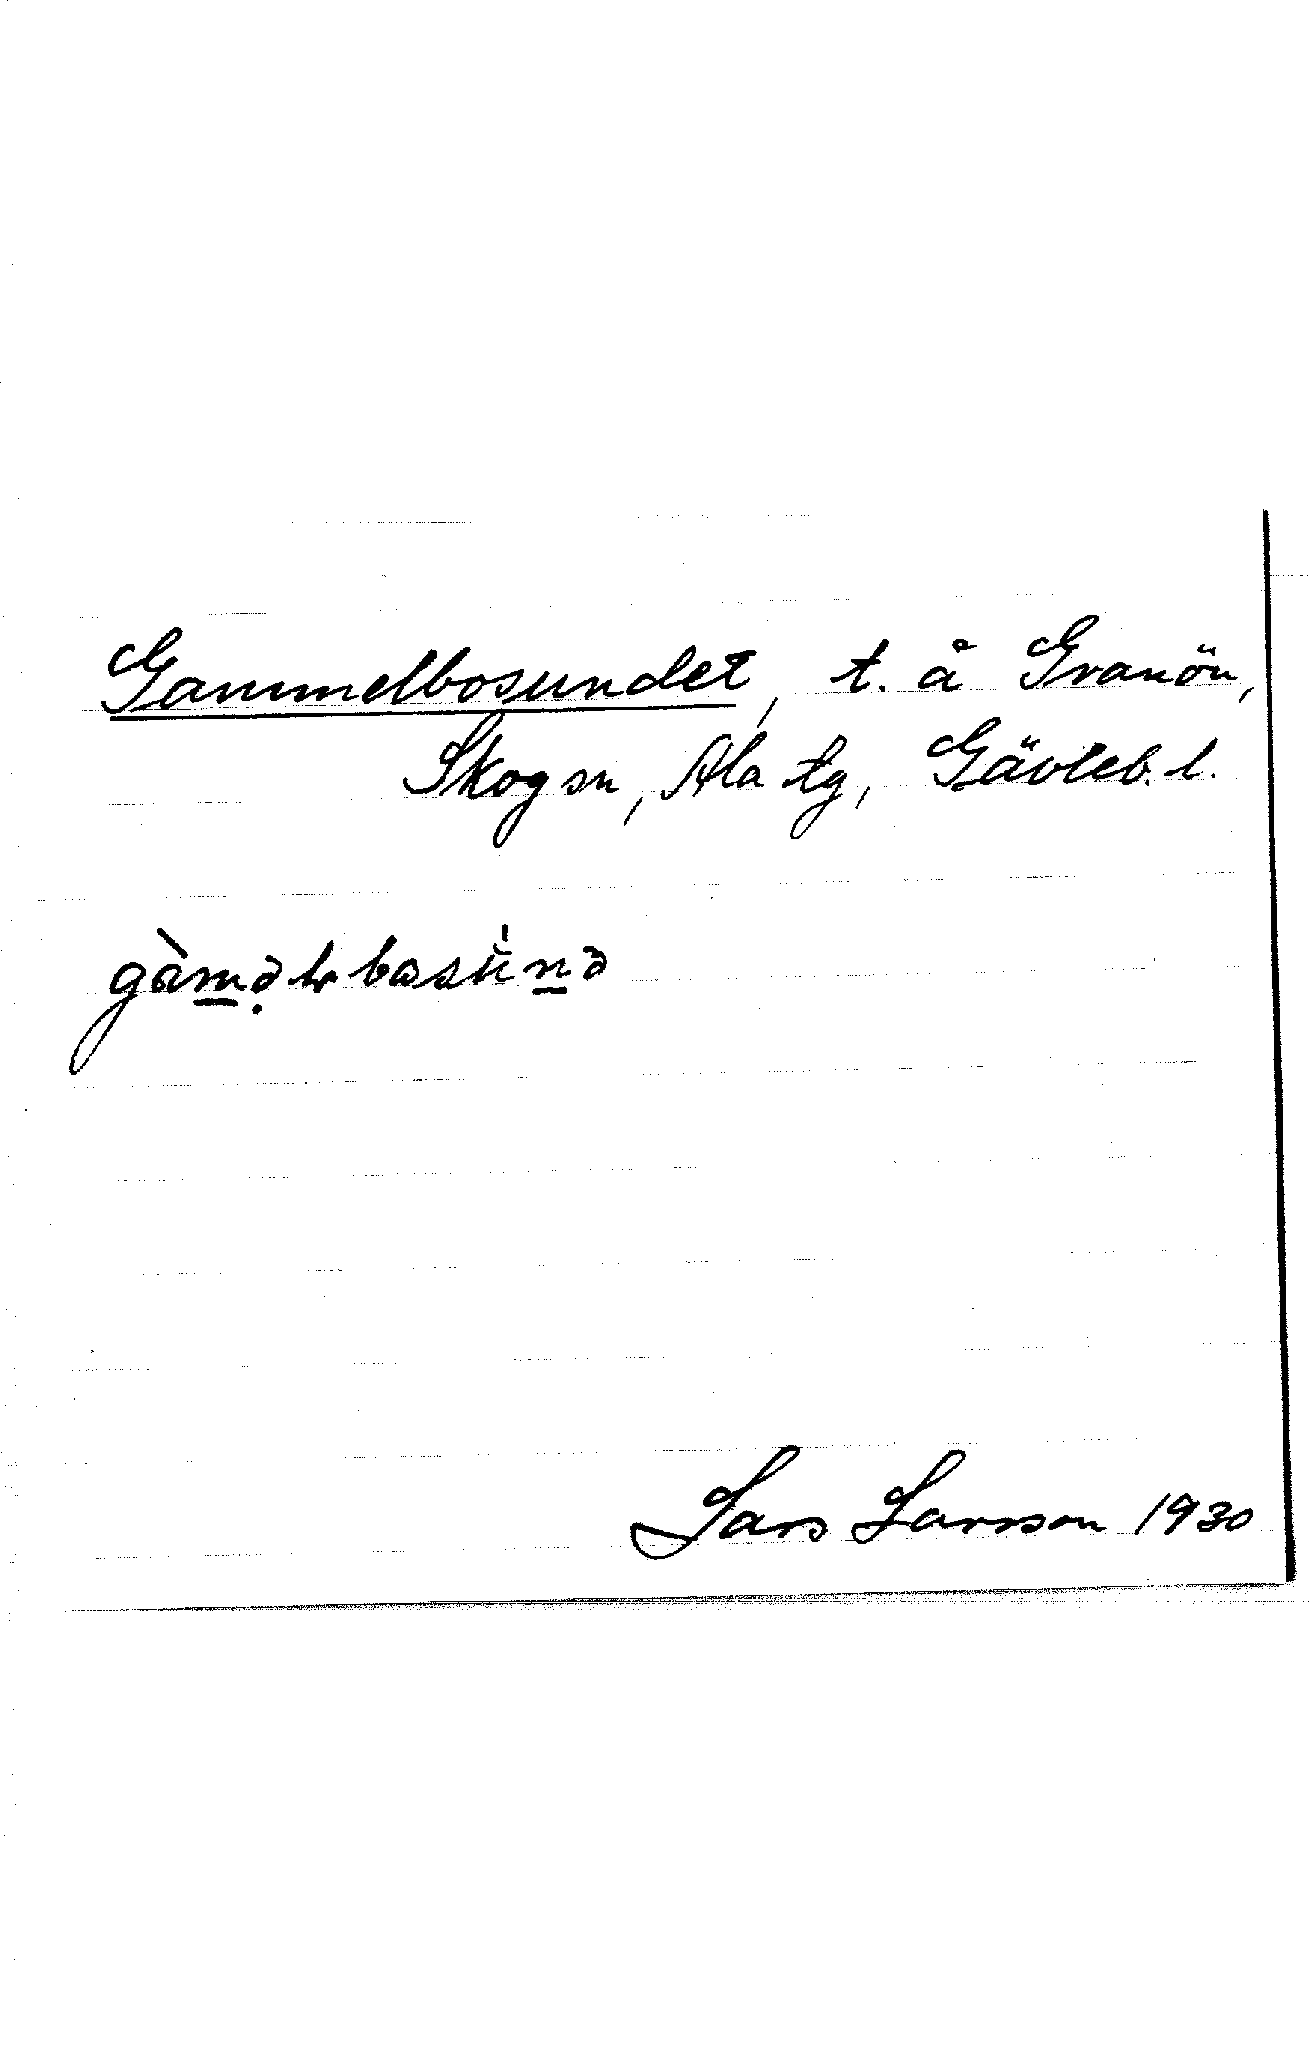 Gammelbosundet, t. å Granön,
Skog sn, Ala tg, Gävleb. l.
Lars Larsson 1930